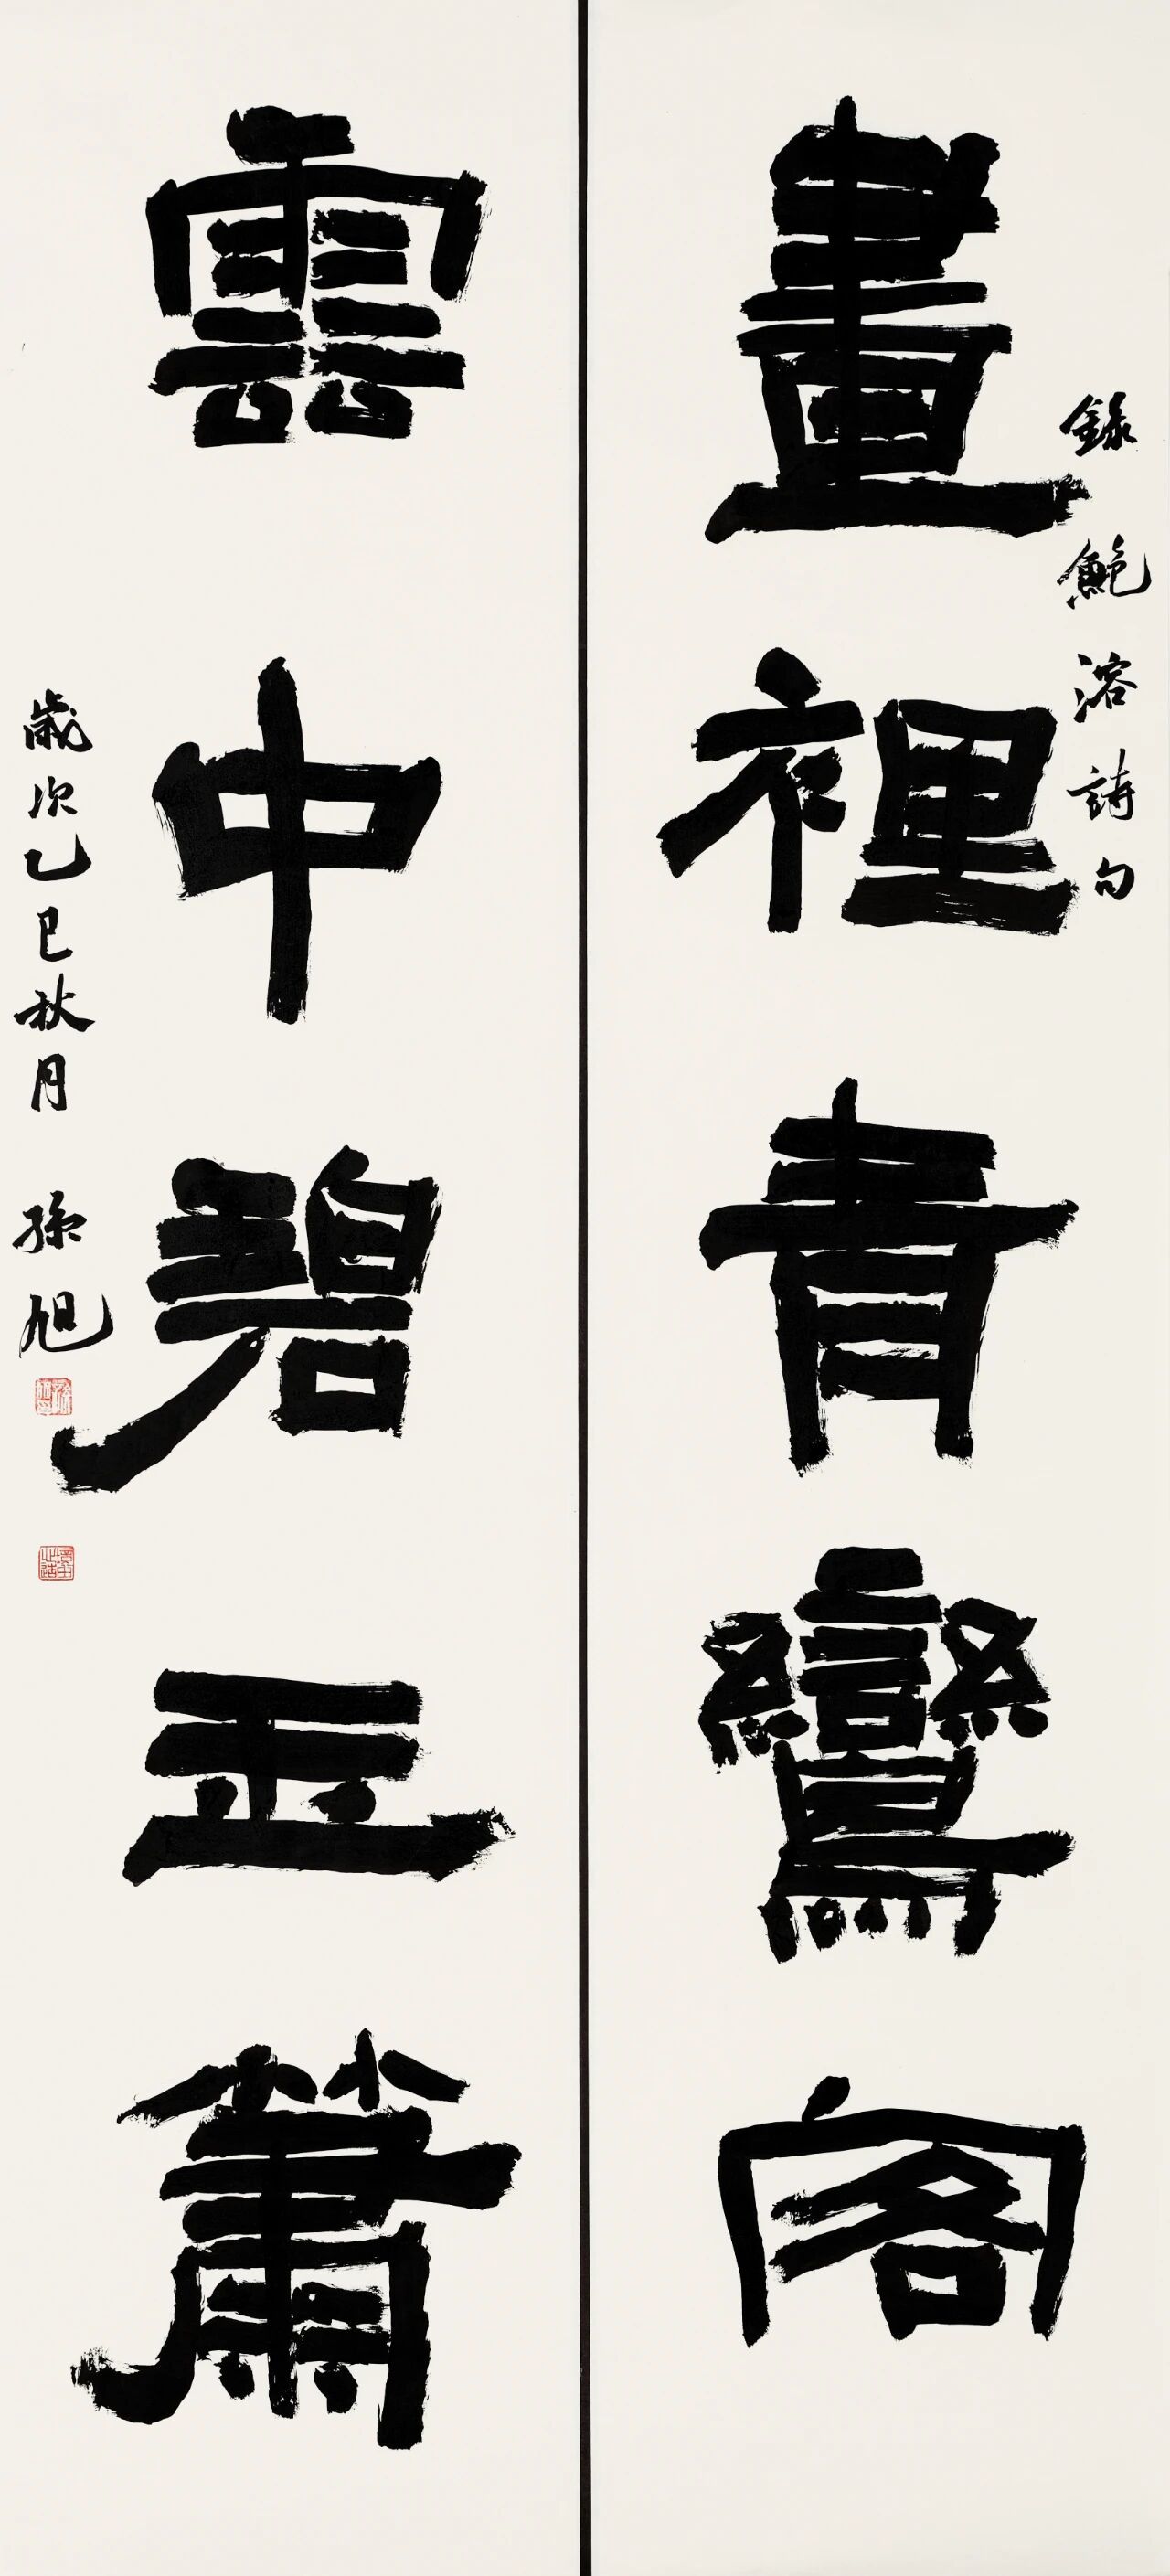 錄鮑溶詩句
畫裡青鸞客
雲中碧玉簫
歲次乙巳秋月 孫旭